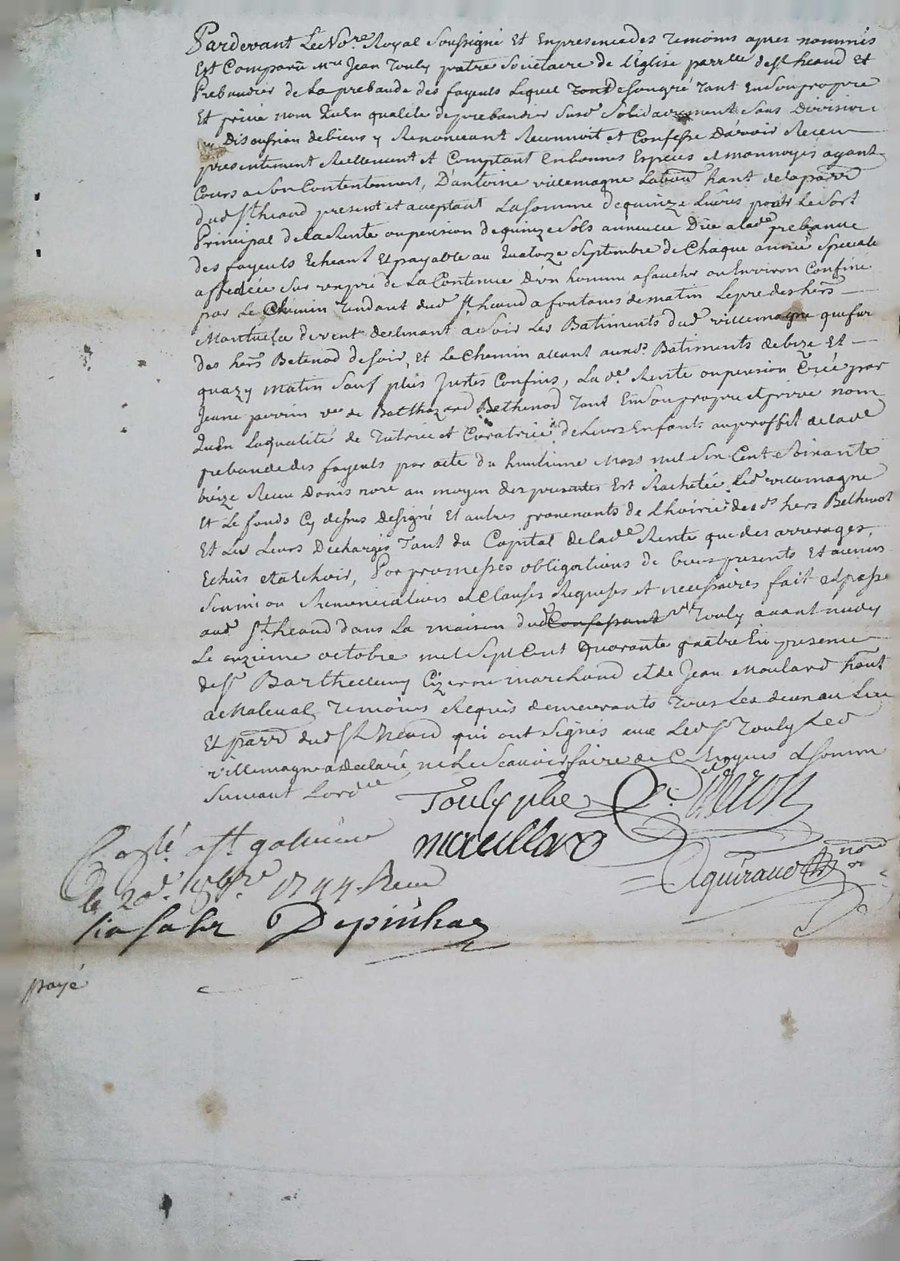 Pardevant Le No.re Royal Soussigné Et En presence des Temoins apres nommés
Est Comparu Mre Jean Touly pretre Societaire de L'Eglise parr.lle de St heand Et
Prebandier de La prebande des fayents Lequel de Son gré Tant En Son propre
Et privé nom Qu'En qualité de prebandier Susd. Solidairement Sans Division
ny Discution de biens y Renonceant Reconnoit et Confesse D'avoir Receu
presentement Reellement et Comptant En bonnes Especes et monnoyes ayant
Cours a Son Contentement, D'antoine villemagne Labour. hant. de la parr.
dud. St heand present et acceptant La Somme de quinze Livres pour Le Sort
Principal de La Rente ou pension de quinze Sols annuelle Düe a lad. prebande
des fayents Echeant Et payable au Quatorze Septembre de Chaque année Speciale
affectée Sur un pré de La Contenue D'un homme a faucher ou Environ Confiné
par Le Chemin Tendant dud. St heand a fontanes de matin Le pré des hers
de vent declinant a Soir Les Batiments dud. villemagne que fur
des hers Betenod de Soir, et Le Chemin allant auxd. Batiments de bize Et
quazy matin Sauf plus Justes Confins, La de. Rente ou pension Créée par
Jeane perrin ve. de Balthazard Bethenod Tant En Son propre et privé nom
Qu'En La qualité de Tutrice et Curatrice de Leurs Enfants au proffit de lad.
prebande des fayents par acte du huitieme Mars mil Six Cent Soixante
treize Receu nore. au moyen des presentes Est Rachetée, Led. villemagne
Et Le fonds Cy dessus designé Et autres provenants de L'hoirie des d. hers Bethenod
Et Les Leurs Dechargés Tant du Capital de lad. Rente que des arrerages
Echüs et a Echoir, Par promesses obligations de biens presents Et avenir
Soumission Renonciations et Clauses Requises et necessaires fait et passé
aud. St heand dans La maison dud. Confessant Mre Touly avant midy
Le onzieme octobre mil Sept Cent quarante quatre En presence
de Sr Barthelemy Cizeron marchand et de Jean Moulard hant.
a Malval Temoins Requis demeurants Tous Les deux au Lieu
Et parr. dud. St heand qui ont Signés avec Led. Sr Touly Led.
villemagne a declaré ne Le Scavoir faire de Ce Enquis et Sommé
Suivant L'ord.ce
Touly ptre Cizeron
moullard
Aguiraud nore
Controlé a St galmier
le 20e. 8bre 1744. Receu
Depinhac
payé